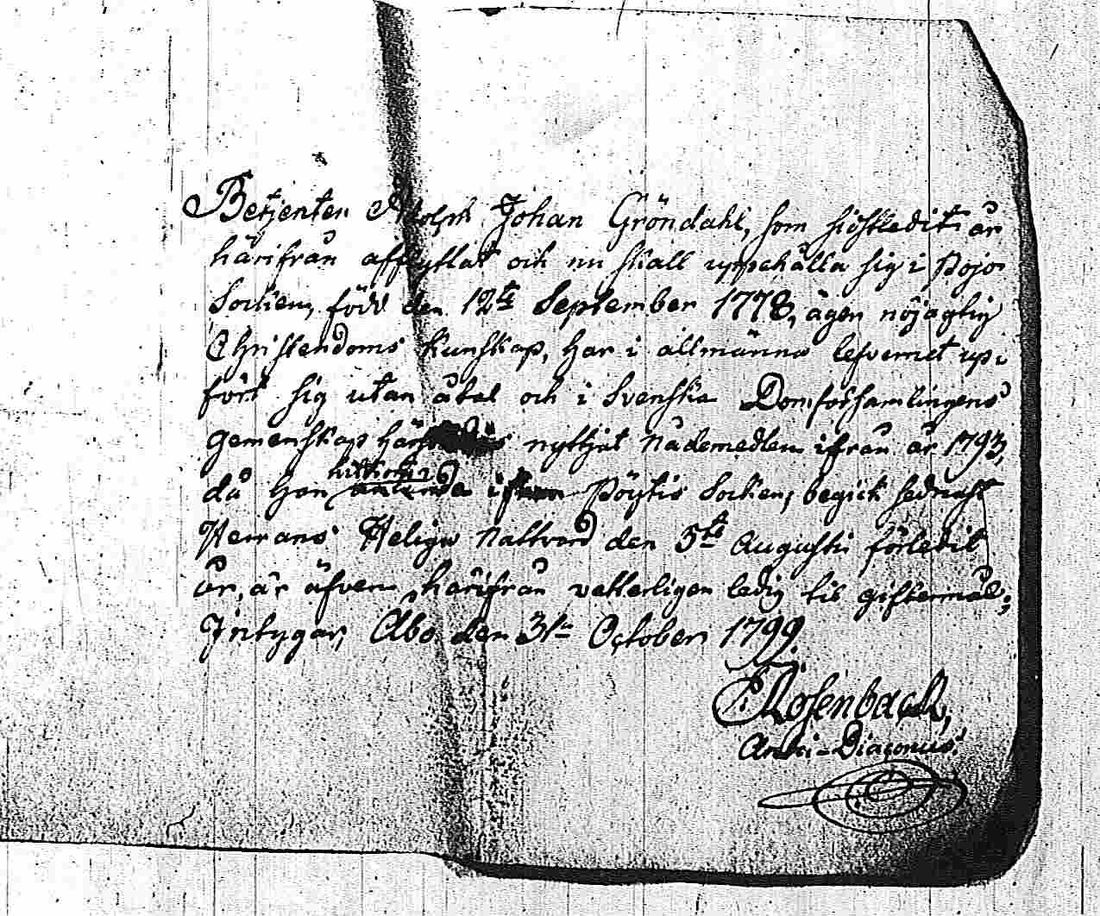 Betjenten Adolph Johan Gröndahl, som sidstledit år
härifrån afflyttat och nu skall uppehålla sig i Pojo
Socken, född den 12te September 1778, ägen nöjagtig
Christendoms Kunskap, har i allmänna lefvernet up-
fört sig utan åtal och i Svenska Domförsamlingens
gemenskap härstädes nyttjat Nådemedlen ifrån år 1793,
då han hitkom ifrån Pöytis Socken; begick sednast
Herrans Heliga Nattvard den 5te Augusti förledit
år, är äfven härifrån vetterligen ledig til giftermål;
Intygar, Åbo den 31te October 1799.
Rosenback,
Archi-Diaconus.